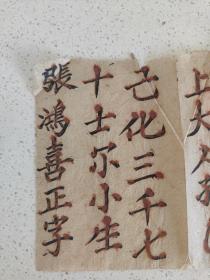 上大人孔
己化三千七
十士尔小生
張鴻喜正字